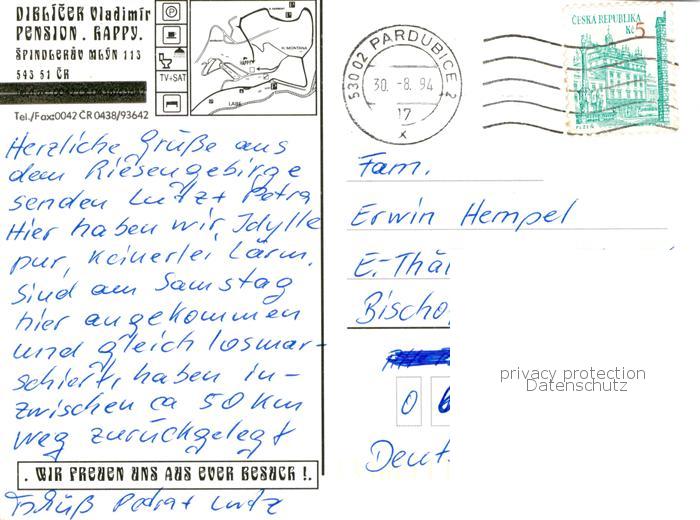 DIBLÍČEK Vladimír
PENSION. HAPPY.
ŠPINDLERŮV MLÝN 113
543 51 ČR
Tel./Fax:0042 ČR 0438/93642
TV+SAT
HAPPY
H. MONTANA
LABE
Herzliche Grüße aus
dem Riesengebirge
senden Lutz + Petra
Hier haben wir Idylle
pur, keinerlei Lärm.
Sind am Samstag
hier angekommen
und gleich losmar-
schiert, haben in-
zwischen ca 50 km
weg zurückgelegt
. WIR FREUEN UNS AUS EUER BESUCH !.
Gruß Petra + Lutz
530 02 PARDUBICE 2
30. -8. 94
17
x
ČESKÁ REPUBLIKA
Kč 5
PLZEŇ
Fam.
Erwin Hempel
E.-Thäl
Bischo
0 6
Deut
privacy protection
Datenschutz